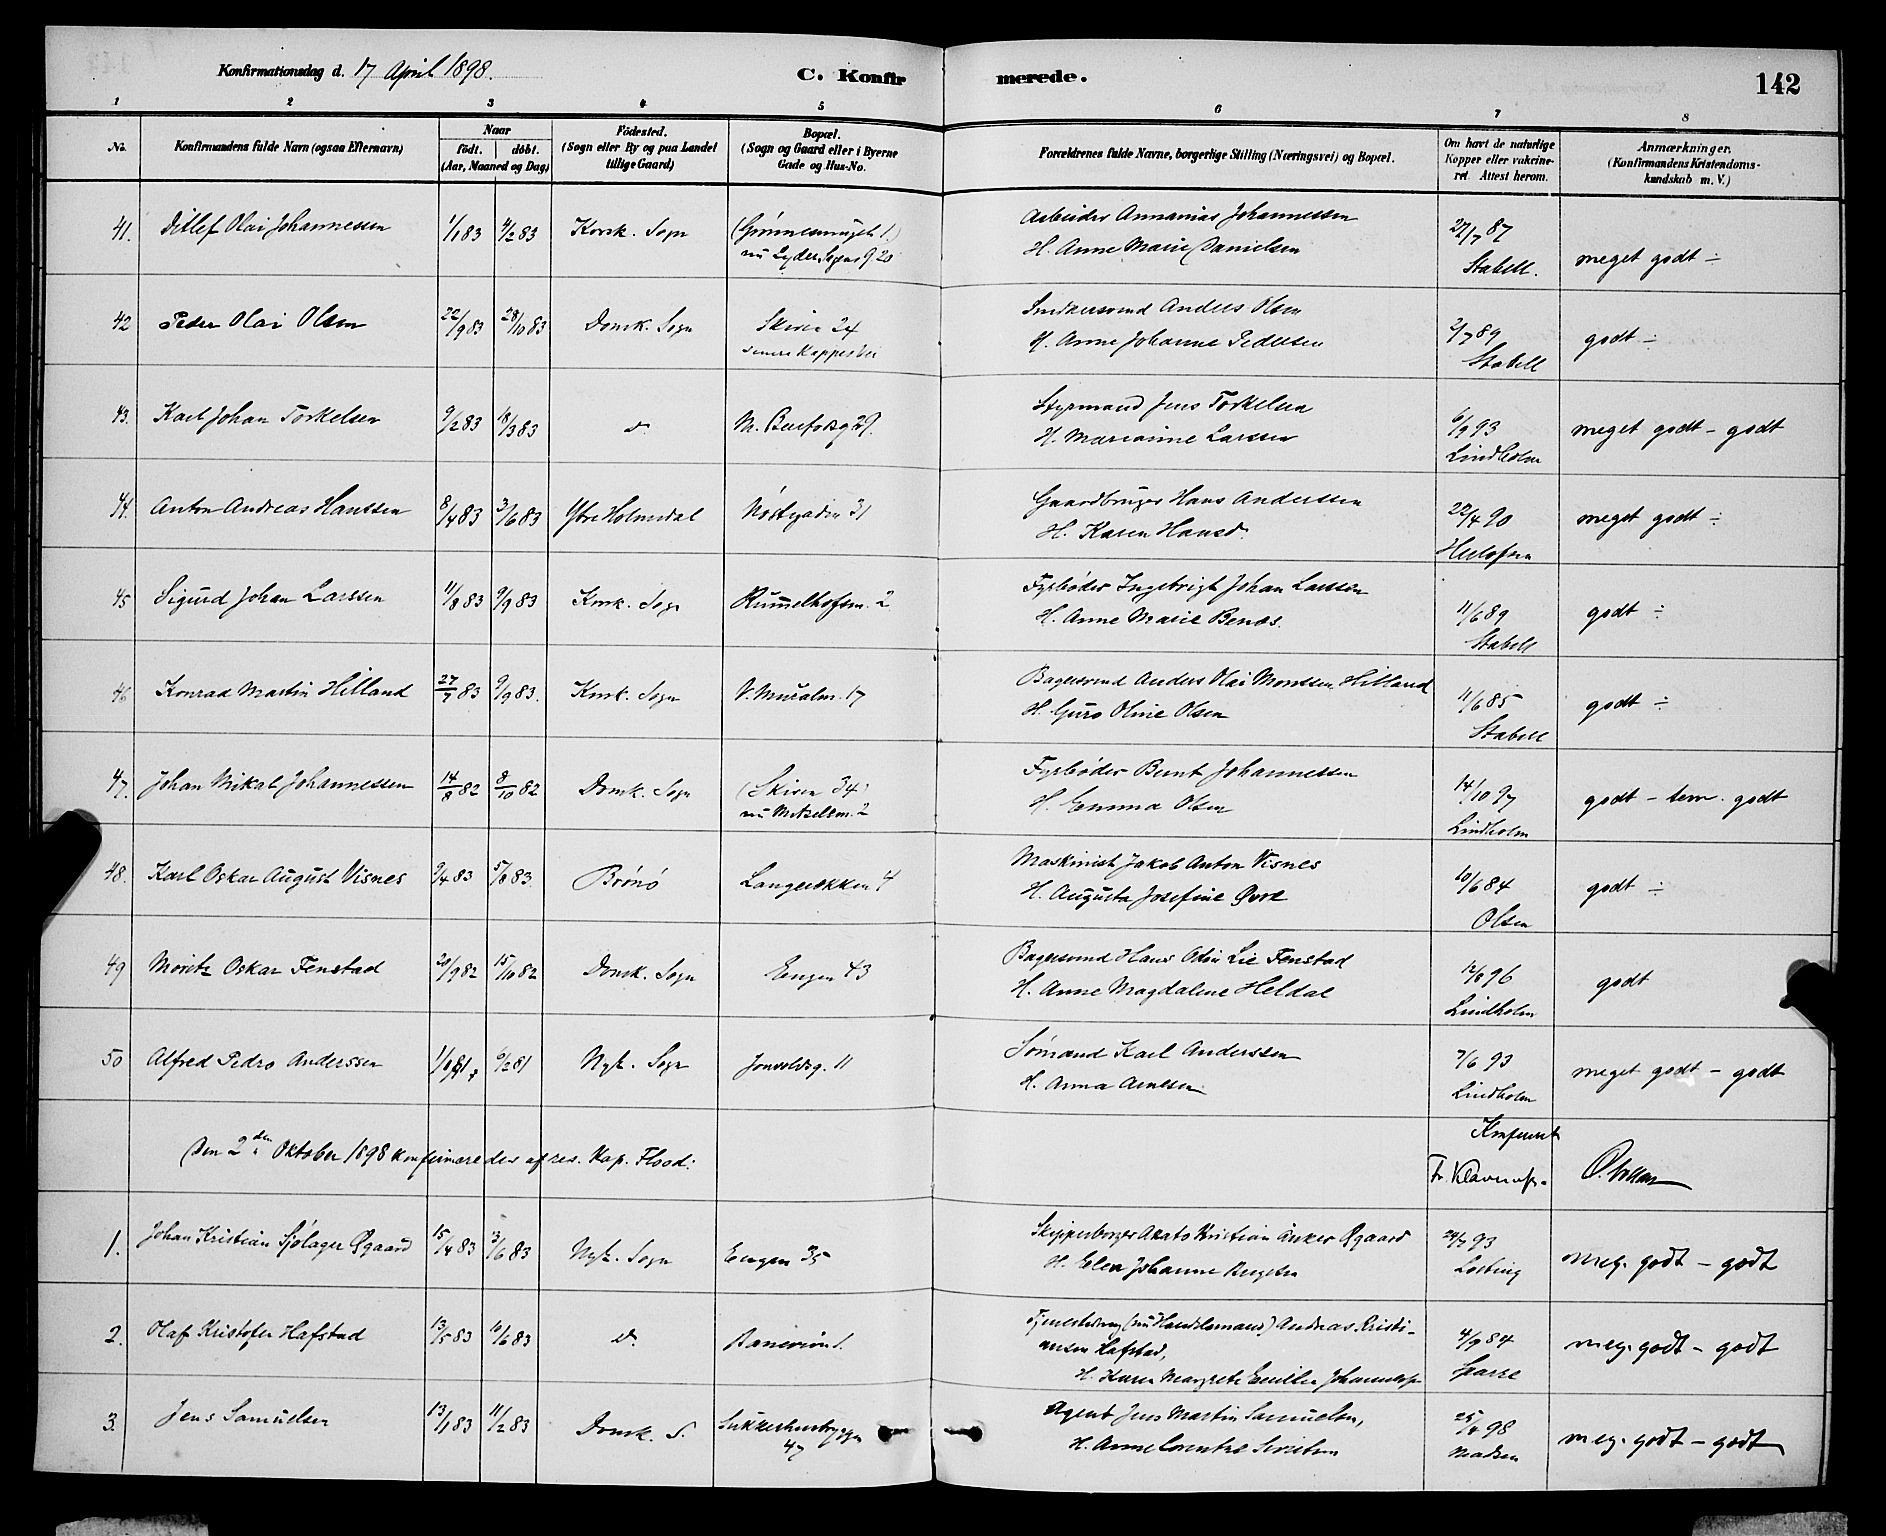 Konfirmationsdag d. 17 April 1898.
C. Konfirmerede.
142
1 2 3 4 5 6 7 8
No.
Konfirmandens fulde Navn (ogsaa Efternavn)
Naar
födt. | döbt.
(Aar, Maaned og Dag)
Födested.
(Sogn eller By og paa Landet
tillige Gaard)
Bopæl.
(Sogn og Gaard eller i Byerne
Gade og Hus-No.
Forældrenes fulde Navne, borgerlige Stilling (Næringsvei) og Bopæl.
Om havt de naturlige
Kopper eller vakcine-
ret. Attest herom.
Anmærkninger.
(Konfirmandens Kristendoms-
kundskab m. V.)
41. Ditlef Olai Johannessen 1/1 83 4/2 83 Korsk. Sogn
nu Lyder Sagens g 20
Arbeider Annanias Johannessen
H. Anne Marie Danielsen
27/7 87
Stabell.
meget godt ÷
42 Peder Olai Olsen 22/9 83 28/10 83 Domk. Sogn Skiven 24
Smedsvend Anders Olsen
H. Anne Johanne Pedersen
2/7 89
Stabell
godt ÷
43. Karl Johan Torkelsen 9/2 83 18/3 83 d.
Styrmand Jens Torkelsen
H. Marianne Larsen
6/9 93
Lindholm
meget godt - godt
44. Anton Andreas Hanssen 8/4 83 3/6 83 Ytre Holmedal Nöstegaden 31
Gaardbruger Hans Anderssen
H. Karen Hansd.
22/4 90
meget godt ÷
45 Sigurd Johan Larssen 11/8 83 9/9 83 Korsk. Sogn Rummelhofsm. 2
Fyrböder Ingebrigt Johan Larssen
H. Anne Marie Benæs.
11/6 89
Stabell
godt ÷
46 Konrad Martin Hilland 27/7 83 9/9 83. Korsk. Sogn V. Muralm. 17
Bagersvend Anders Olai Monssen Hilland
H. Guro Oline Olsen
11/6 85
Stabell
godt ÷
47. Johan Mikal Johannessen 14/8 82 8/10 82 Domk. Sogn (Skiven 34)
nu 2
Fyrböder Bernt Johannessen
H. Emma Olsen
14/10 97
Lindholm
godt - tem. godt
48. Karl Oskar August Visnes 9/4 83 5/8 83. Brönö Langerækken 4
Maskinist Jakob Anton Visnes
H. Augusta Josefine
10/6 84
Olsen
godt ÷
49 Moritz Oskar Fenstad 20/9 82 15/10 82 Domk. Sogn Engen 43
Bagersvend Hans Odin Lie Fenstad
H. Anne Magdalene Heldal
12/8 96
Lindholm
godt
50 Alfred Pedro Anderssen 6/2 81 Nyk. Sogn Jonsvoldsg. 11
Sömand Karl Anderssen
H. Anna Arnesen
7/6 93
Lindholm
meget godt - godt
Den 2den Oktober 1898 konfirmeredes af res. Kap. Flood:
Konfereret
1. Johan Kristian Sjölager Øgaard 15/4 83 3/6 83 Nyk. Sogn Engen 35
Skipperborger Kristian Anker Øgaard
H. Elen Johanne Bergetsen
24/7 93
meg. godt - godt
2. Olaf Kristofer Hafstad 13/5 83 10/6 83 d.
(nu Handelsmand) Andreas Kristi-
ansen Hafstad,
H. Karen Margrete Emilie
4/9 84
Sparre
meg. godt - godt
3. Jens Samuelsen 13/1 83 11/2 83 Domk. S. Sukkerhusbryggen
47
Agent Jens Martin Samuelsen,
98
Madsen
meg. godt - godt